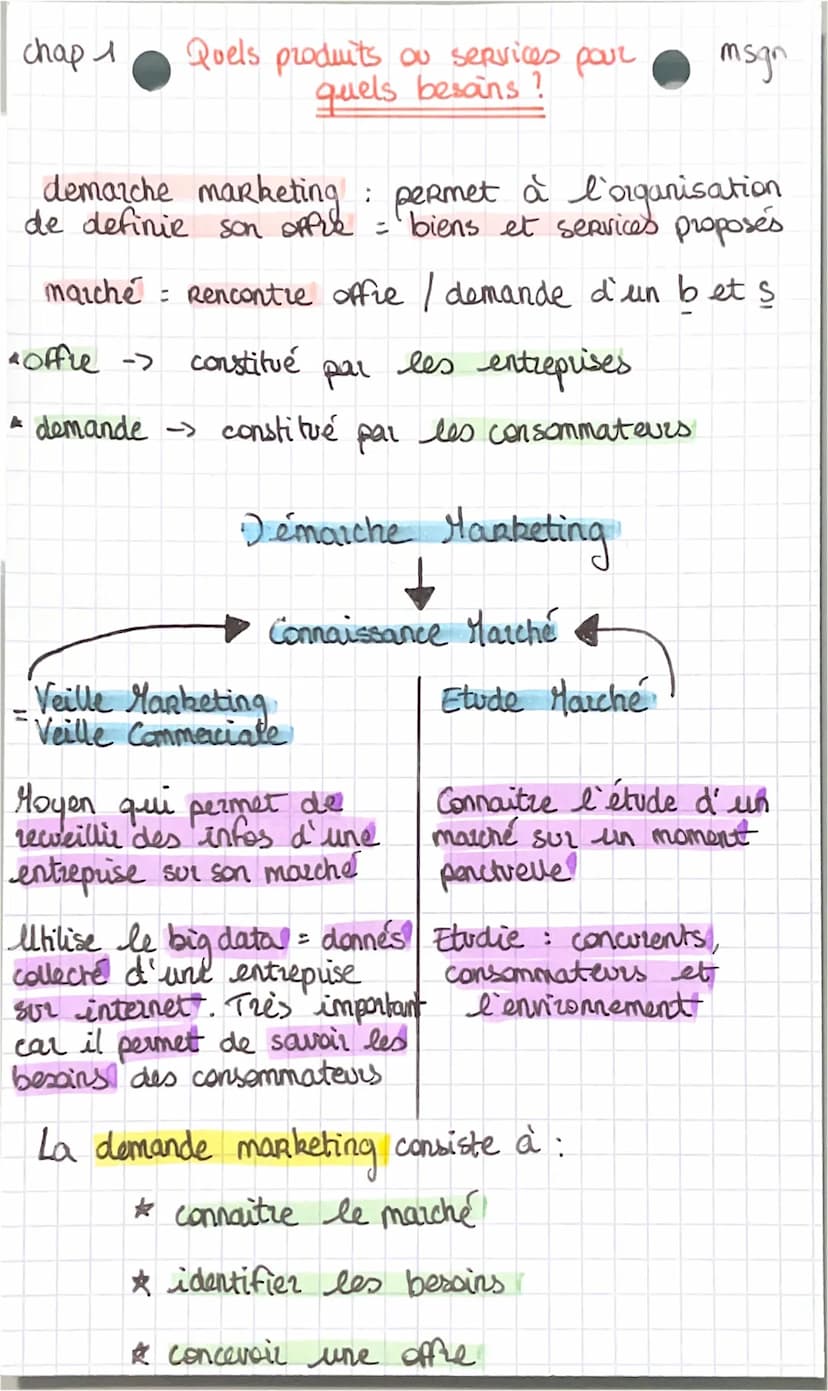 chap 1
Quels produits ou services pour
quels besoins ?
msgn
demarche marketing : permet à l'organisation
de definie son offre = biens et services proposés
marché = Rencontre offre / demande d'un b et s
*offre -> constitué par les entreprises
* demande -> constitué par les consommateurs
Démarche Marketing
Connaissance Marché
= Veille Marketing
Veille Commerciale
Moyen qui permet de
recueillir des infos d'une
entreprise sur son marché
Utilise le big data = donnés
collecté d'une entrepise
sur internet. Très important
car il permet de savoir les
besoins des consommateurs
Etude Marché
Connaitre l'étude d'un
marché sur un moment
ponctuelle
Etudie : concurents,
consommateurs et
l'environnement
La demande marketing consiste à :
* connaitre le marché
* identifier les besoins
* concevoir une offre